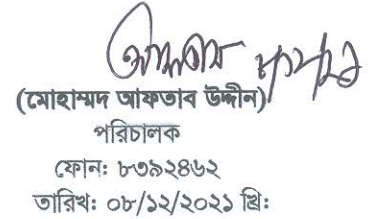 (মোহাম্মদ আফতাব উদ্দীন)
পরিচালক
ফোন: ৮৩৯২৪৬২
তারিখ: ০৮/১২/২০২১ খ্রি: